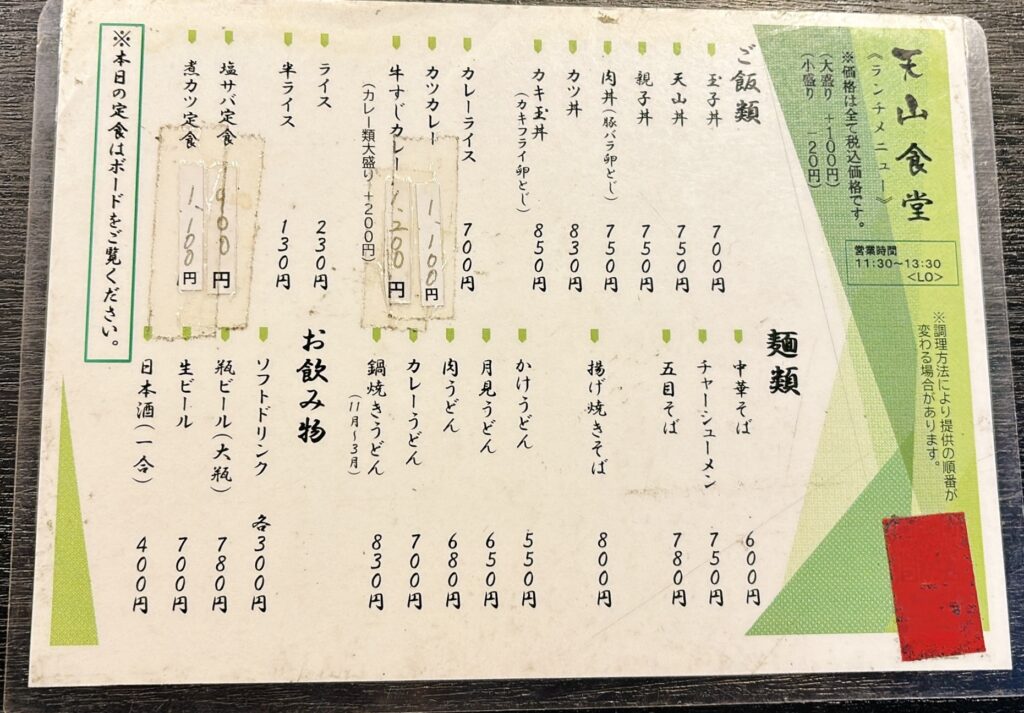 天山食堂
《ランチメニュー》
※価格は全て税込価格です。
(大盛り +100円)
(小盛り －20円)
営業時間
11:30～13:30
<LO>
※調理方法により提供の順番が
変わる場合があります。
ご飯類
玉子丼 700円
天山丼 750円
親子丼 750円
肉丼(豚バラ卵とじ) 750円
カツ丼 830円
カキ玉丼 850円
(カキフライ卵とじ)
カレーライス 700円
カツカレー 1,100円
牛すじカレー 1,200円
(カレー類大盛り +200円)
ライス 230円
半ライス 130円
塩サバ定食 900円
煮カツ定食 1,100円
※本日の定食はボードをご覧ください。
麺類
中華そば 600円
チャーシューメン 750円
五目そば 780円
揚げ焼きそば 800円
かけうどん 550円
月見うどん 650円
肉うどん 680円
カレーうどん 700円
鍋焼きうどん 830円
(11月～3月)
お飲み物
ソフトドリンク 各300円
瓶ビール(大瓶) 780円
生ビール 700円
日本酒(一合) 400円